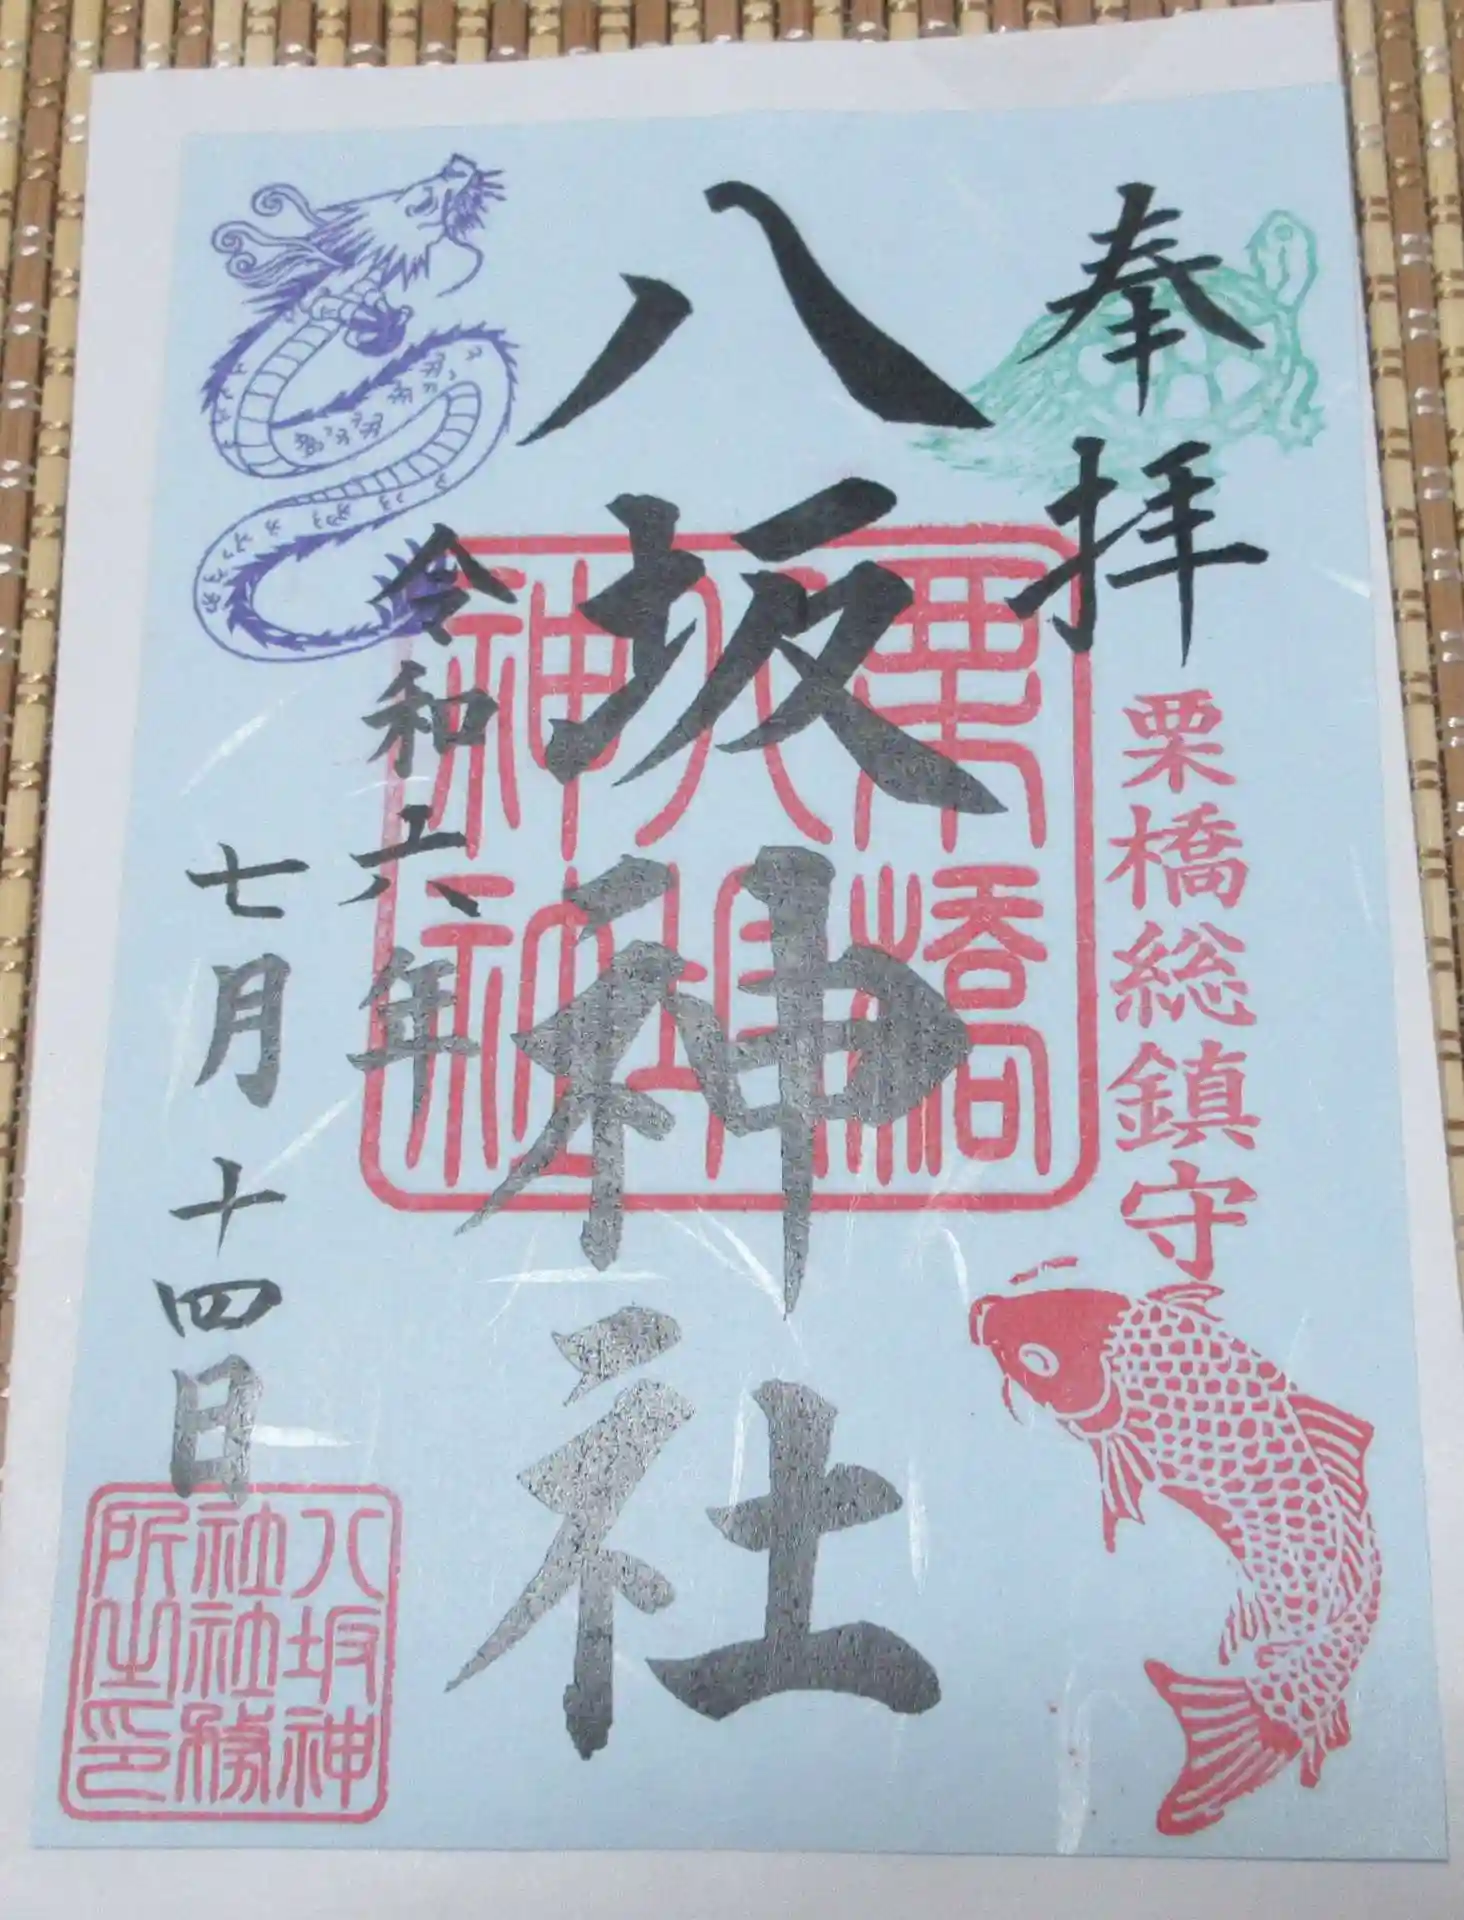 奉拝
栗橋総鎮守
八坂神社
令和六年
七月十四日
栗橋
八坂
神社
八坂神
社社務
所之印